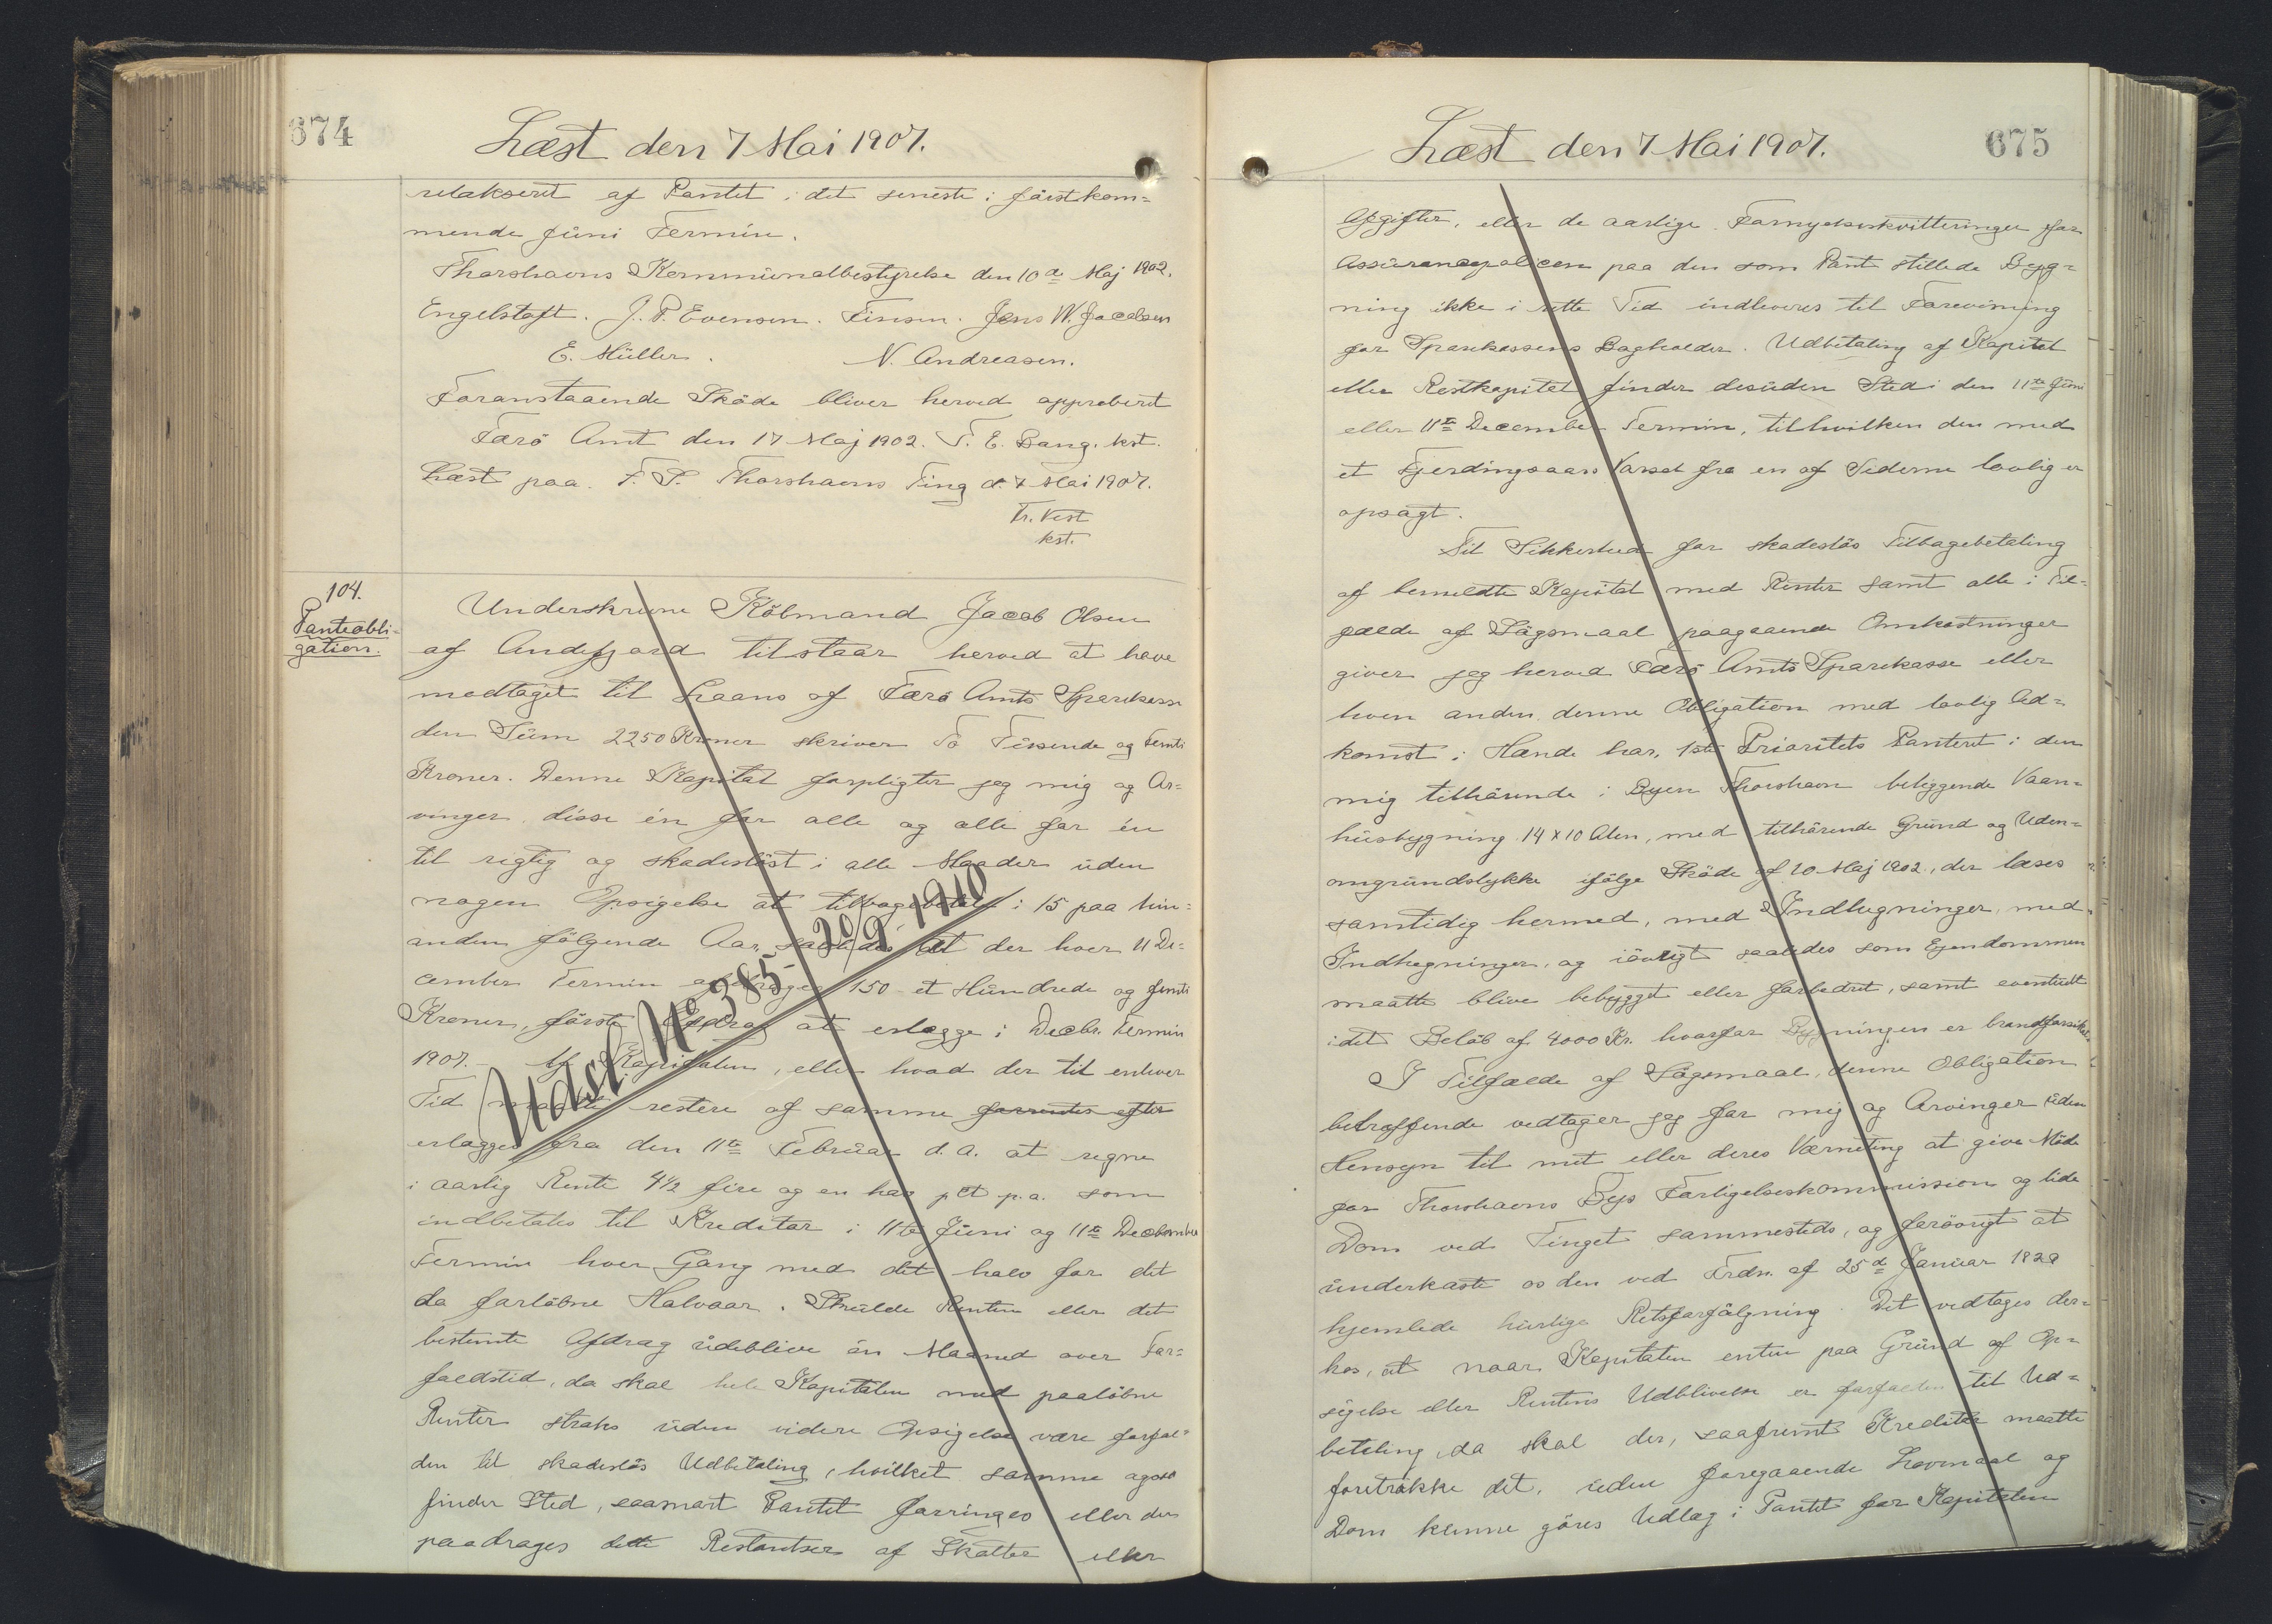 674
Læst den 7 Mai 1907.
relakseret af Pantet i det seneste i förstkom=
mende Juni Termin.
Thorshavns Kommunalbestyrelse den 10de Maj 1902.
Engelstoft. J. P. Evensen. Finsen. Jens W. Jacobsen
E. Müller. N. Andreasen.
Foranstaaende Sköde bliver herved approberet
Færö Amt den 17 Maj 1902. T. E. Bang. kst.
Læst paa T. S. Thorshavns Ting d. 7 Mai 1907.
Fr. Vest
kst.
104.
Panteobli=
gation.
Underskrevne Köbmand Jacob Olsen
af Andefjord tilstaar herved at have
modtaget til Laans af Færö Amts Sparekasse
den Sum 2250 Kroner skriver To Tusende og Femti
Kroner. Denne Kapital forpligter jeg mig og Ar=
vinger disse én for alle og alle for én
til rigtig og skadeslöst i alle Maader uden
nogen Opsigelse at tilbagebetale i 15 paa hin=
anden fölgende Aar, saaledes at der hver 11 De=
cember Termin afdrages 150 - et Hundrede og femti
Kroner, förste Afdrag at erlægge i Decbr. Termin
1907. - Af Kapitalen, eller hvad der til enhver
Tid maatte restere af samme forrentes efter
erlægges fra den 11te Februar d. A. at regne
i aarlig Rente 4½ fire og en halv pCt p.a. som
indbetales til Kreditor i 11te Juni og 11te December
Termin hver Gang med det halve for det
da forløbne Halvaar. Skulde Renten eller det
bestemte Afdrag udeblive én Maaned over For=
faldstid, da skal hele Kapitalen med paaløbne
Renter straks uden videre Opsigelse være forfal=
den til skadeslös Udbetaling, hvilket samme ogsaa
finder Sted, saasnart Pantet forringes eller der
paadrages dette Restantser af Skatter eller
Udsl. No 385 - 20/9 1910
675
Læst den 7 Mai 1907.
Afgifter, eller de aarlige Fornyelseskvitteringer for
Assurancepolicen paa den som Pant stillede Byg=
ning ikke i rette Tid indleveres til Forevisning
for Sparekassens Bogholder. Udbetaling af Kapital
eller Restkapital finder desuden Sted i den 11te Juni
eller 11te December Termin, til hvilken den med
et Fjerdingaars Varsel fra en af Siderne lovlig er
opsagt.
Til Sikkerhed for skadeslös Tilbagebetaling
af bemeldte Kapital med Renter samt alle i Til=
fælde af Sögsmaal paagaaende Omkostninger
giver jeg herved Færö Amts Sparekasse eller
hvem anden denne Obligation med lovlig Ad=
komst i Hænde har, 1ste Prioritets Panteret i den
mig tilhörende i Byen Thorshavn beliggende Vaan=
husbygning 14 x 10 Alen, med tilhörende Grund og Uden=
omgrundstykke ifölge Sköde af 10 Maj 1902, der læses
samtidig hermed, med Indlugninger, med
Indhegninger, og iövrigt saaledes som Ejendommen
maatte blive bebygget eller forbedret, samt eventuelt
i det Belöb af 4000 Kr. hvorfor Bygningen er brandforsikret
I Tilfælde af Sögsmaal, denne Obligation
betreffende vedtager jeg for mig og Arvinger uden
Hensyn til mit eller deres Værneting at give Möde
for Thorshavns Bys Forligelseskommission og lide
Dom ved Tinget sammesteds, og forövrigt at
underkaste os den ved Frdn. af 25de Januar 1828
hjemlede hurtige Retsforfölgning. Det vedtages der=
hos, at naar Kapitalen enten paa Grund af Op=
sigelse eller Rentens Udeblivelse er forfalden til Ud=
betaling, da skal der, saafremt Kreditor maatte
foretrække det, uden foregaaende Lovmaal og
Dom kunne göres Udlæg i Pantet for Kapitalen